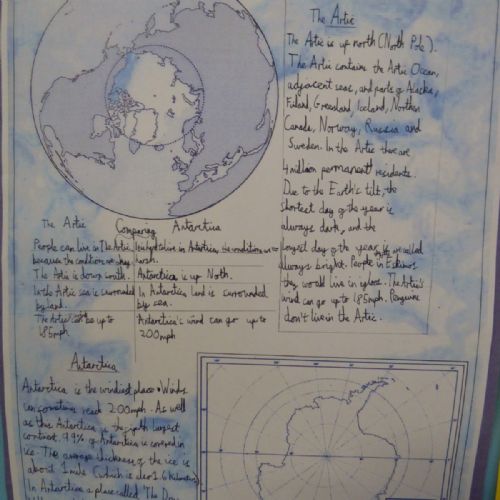 The Artic
The Artic is up north (North Pole).
The Artic contains the Artic Ocean,
adjacent seas, and parts of Alaska,
Finland, Greenland, Iceland, Northern
Canada, Norway, Russia and
Sweden. In the Artic there are
4 million permanent residents.
Due to the Earth's tilt, the
shortest day of the year is
always dark, and the
longest day of the year is
always bright. People in
they would live in igloos. The Artic's
wind can go up to 185mph. Penguins
don't live in the Artic.
The Artic Comparing Antartica
People can live in The Artic
because the conditions are
The Artic is down south.
In the Artic sea is surrounded
by land.
The Artic's can be up to
185mph
live in Antartica, the conditions
harsh.
Antartica is up North.
In Antartica, land is surrounded
by sea.
Antartica's wind can go up to
200mph
Antartica
Antartica is the windiest place. Winds
can sometimes reach 200mph. As well
as this Antartica is the fifth largest
continent. 99% of Antartica is covered in
ice. The average thickness of the ice is
about 1 mile (which is also 1.6 kilometres).
In Antartica a place called The Dry